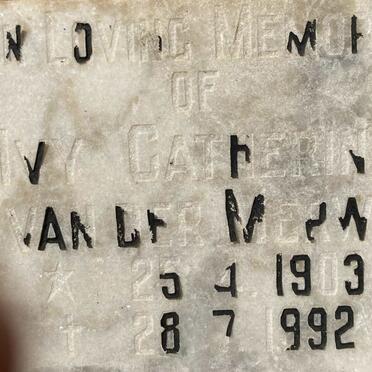 IN LOVING MEMOR
OF
IVY CATHERIN
VAN DER MERW
* 25 4 1903
† 28 7 1992